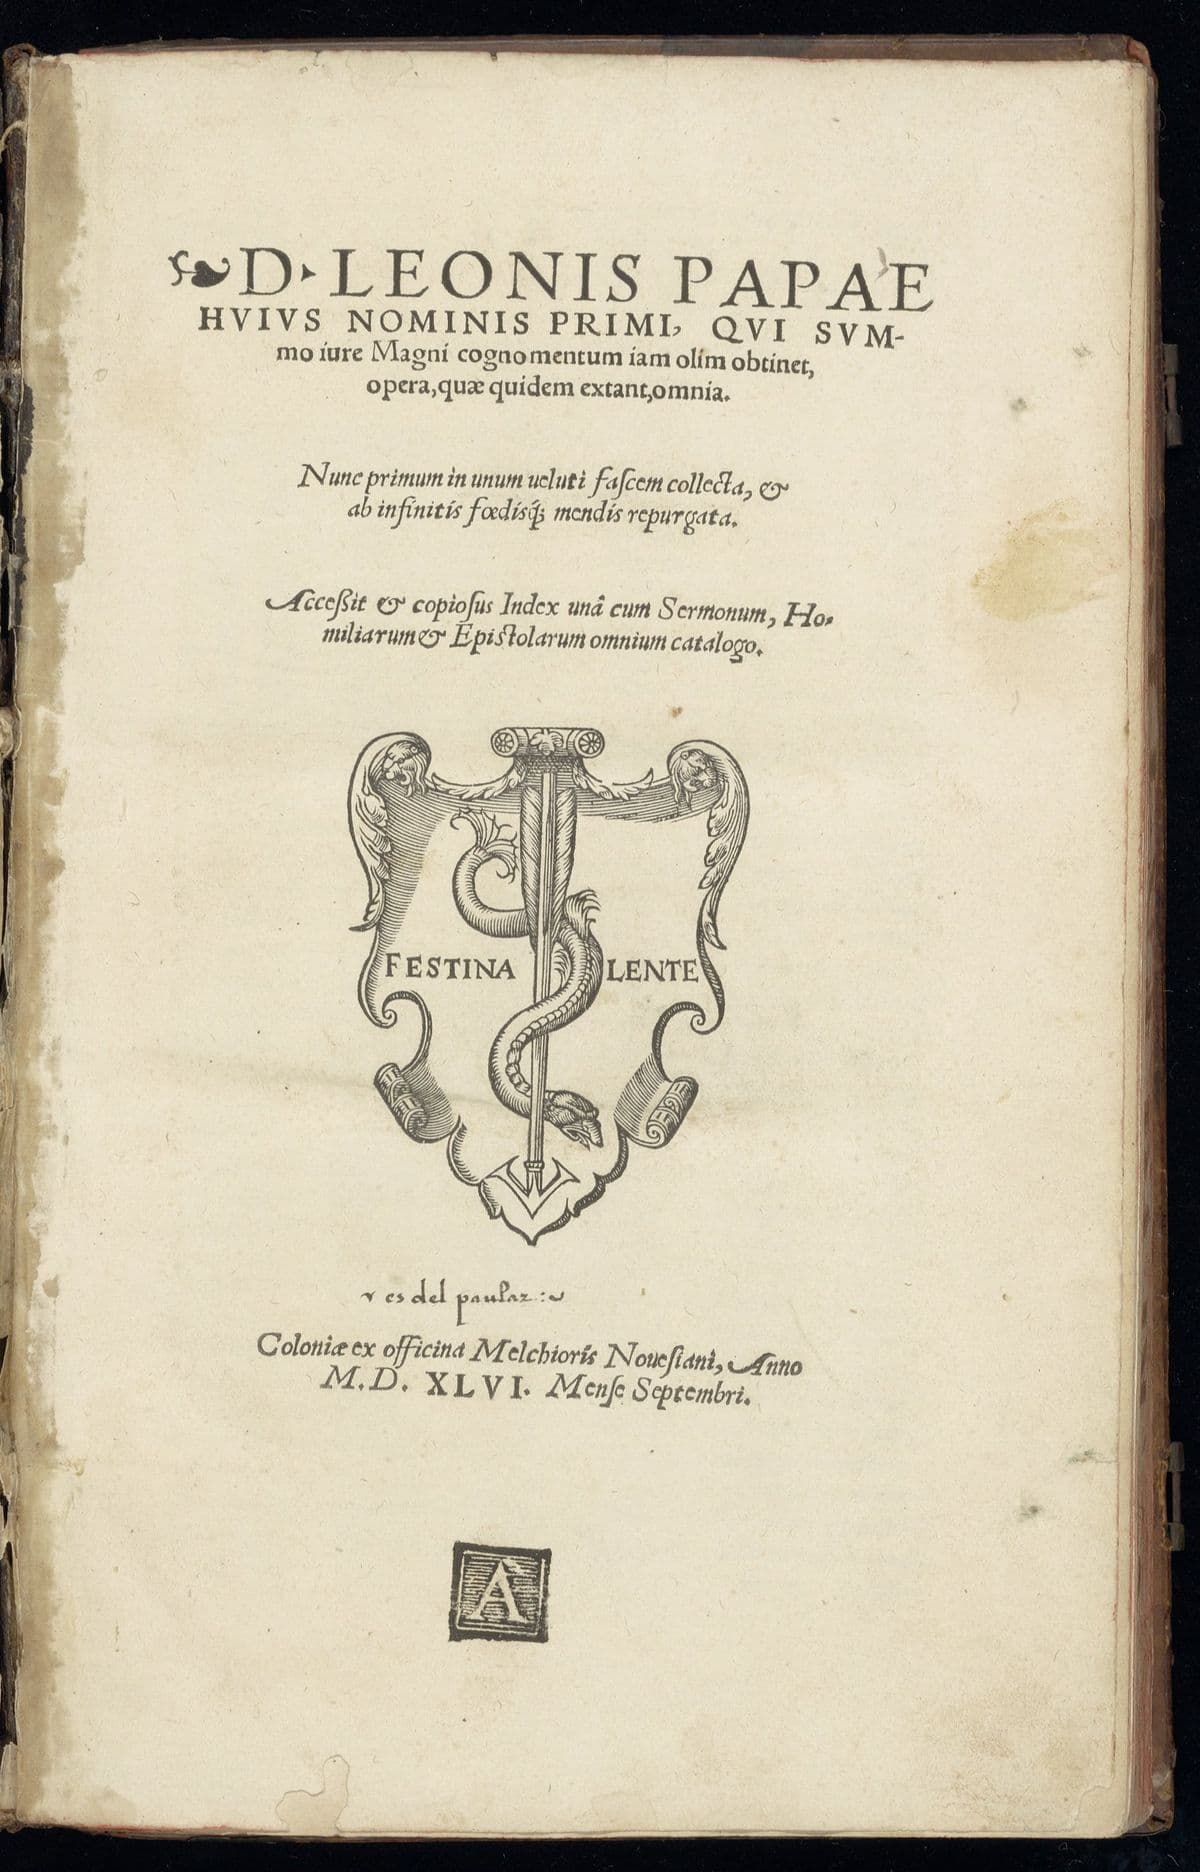 D. LEONIS PAPAE
HVIVS NOMINIS PRIMI, QVI SVM-
mo iure Magni cognomentum iam olim obtinet,
opera, quæ quidem extant, omnia.
Nunc primum in unum ueluti faſcem collecta, &
ab infinitis fœdisq́; mendis repurgata.
Acceßit & copioſus Index unâ cum Sermonum, Ho-
miliarum & Epistolarum omnium catalogo.
FESTINA LENTE
es del paular
Coloniæ ex officina Melchioris Noueſiani, Anno
M.D. XLVI. Menſe Septembri.
A